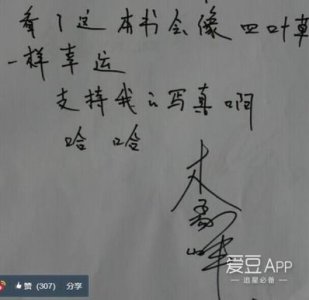 看了这本书会像四叶草
一样幸运
支持我的写真啊
哈哈
赞(307) 分享
爱豆APP
追星必备